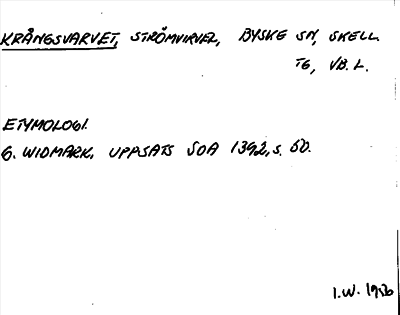 KRÅNGSVARVET, STRÖMVIRVEL, BYSKE SN, SKELL.
TG, VB. L.
ETYMOLOGI.
G. WIDMARK, UPPSATS SOA 1392, S. 50.
I.W.